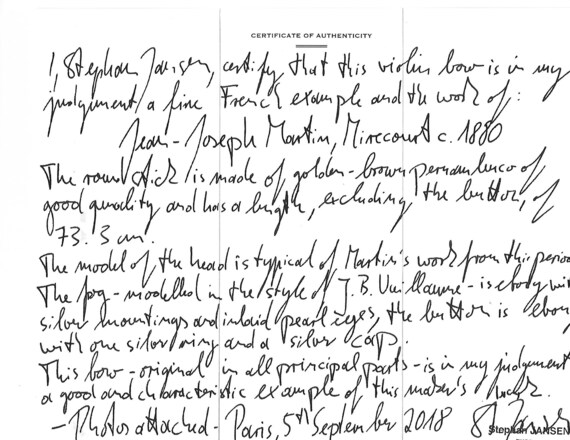 CERTIFICATE OF AUTHENTICITY
I, Stephan Jansen, certify that this violin bow is in my
judgement, a fine French example and the work of :
Jean-Joseph Martin, Mirecourt c. 1880
The round stick is made of golden-brown pernambuco of
good quality and has a length, excluding the button, of
73.3 cm.
The model of the head is typical of Martin's work from this period
The frog - modelled in the style of J.B. Vuillaume - is ebony with
silver mountings and inlaid pearl eyes, the button is ebony
with one silver ring and a silver cap.
This bow - original in all principal parts - is in my judgement
a good and characteristic example of this maker's work.
- Photos attached - Paris, 5th September 2018
Stephan JANSEN